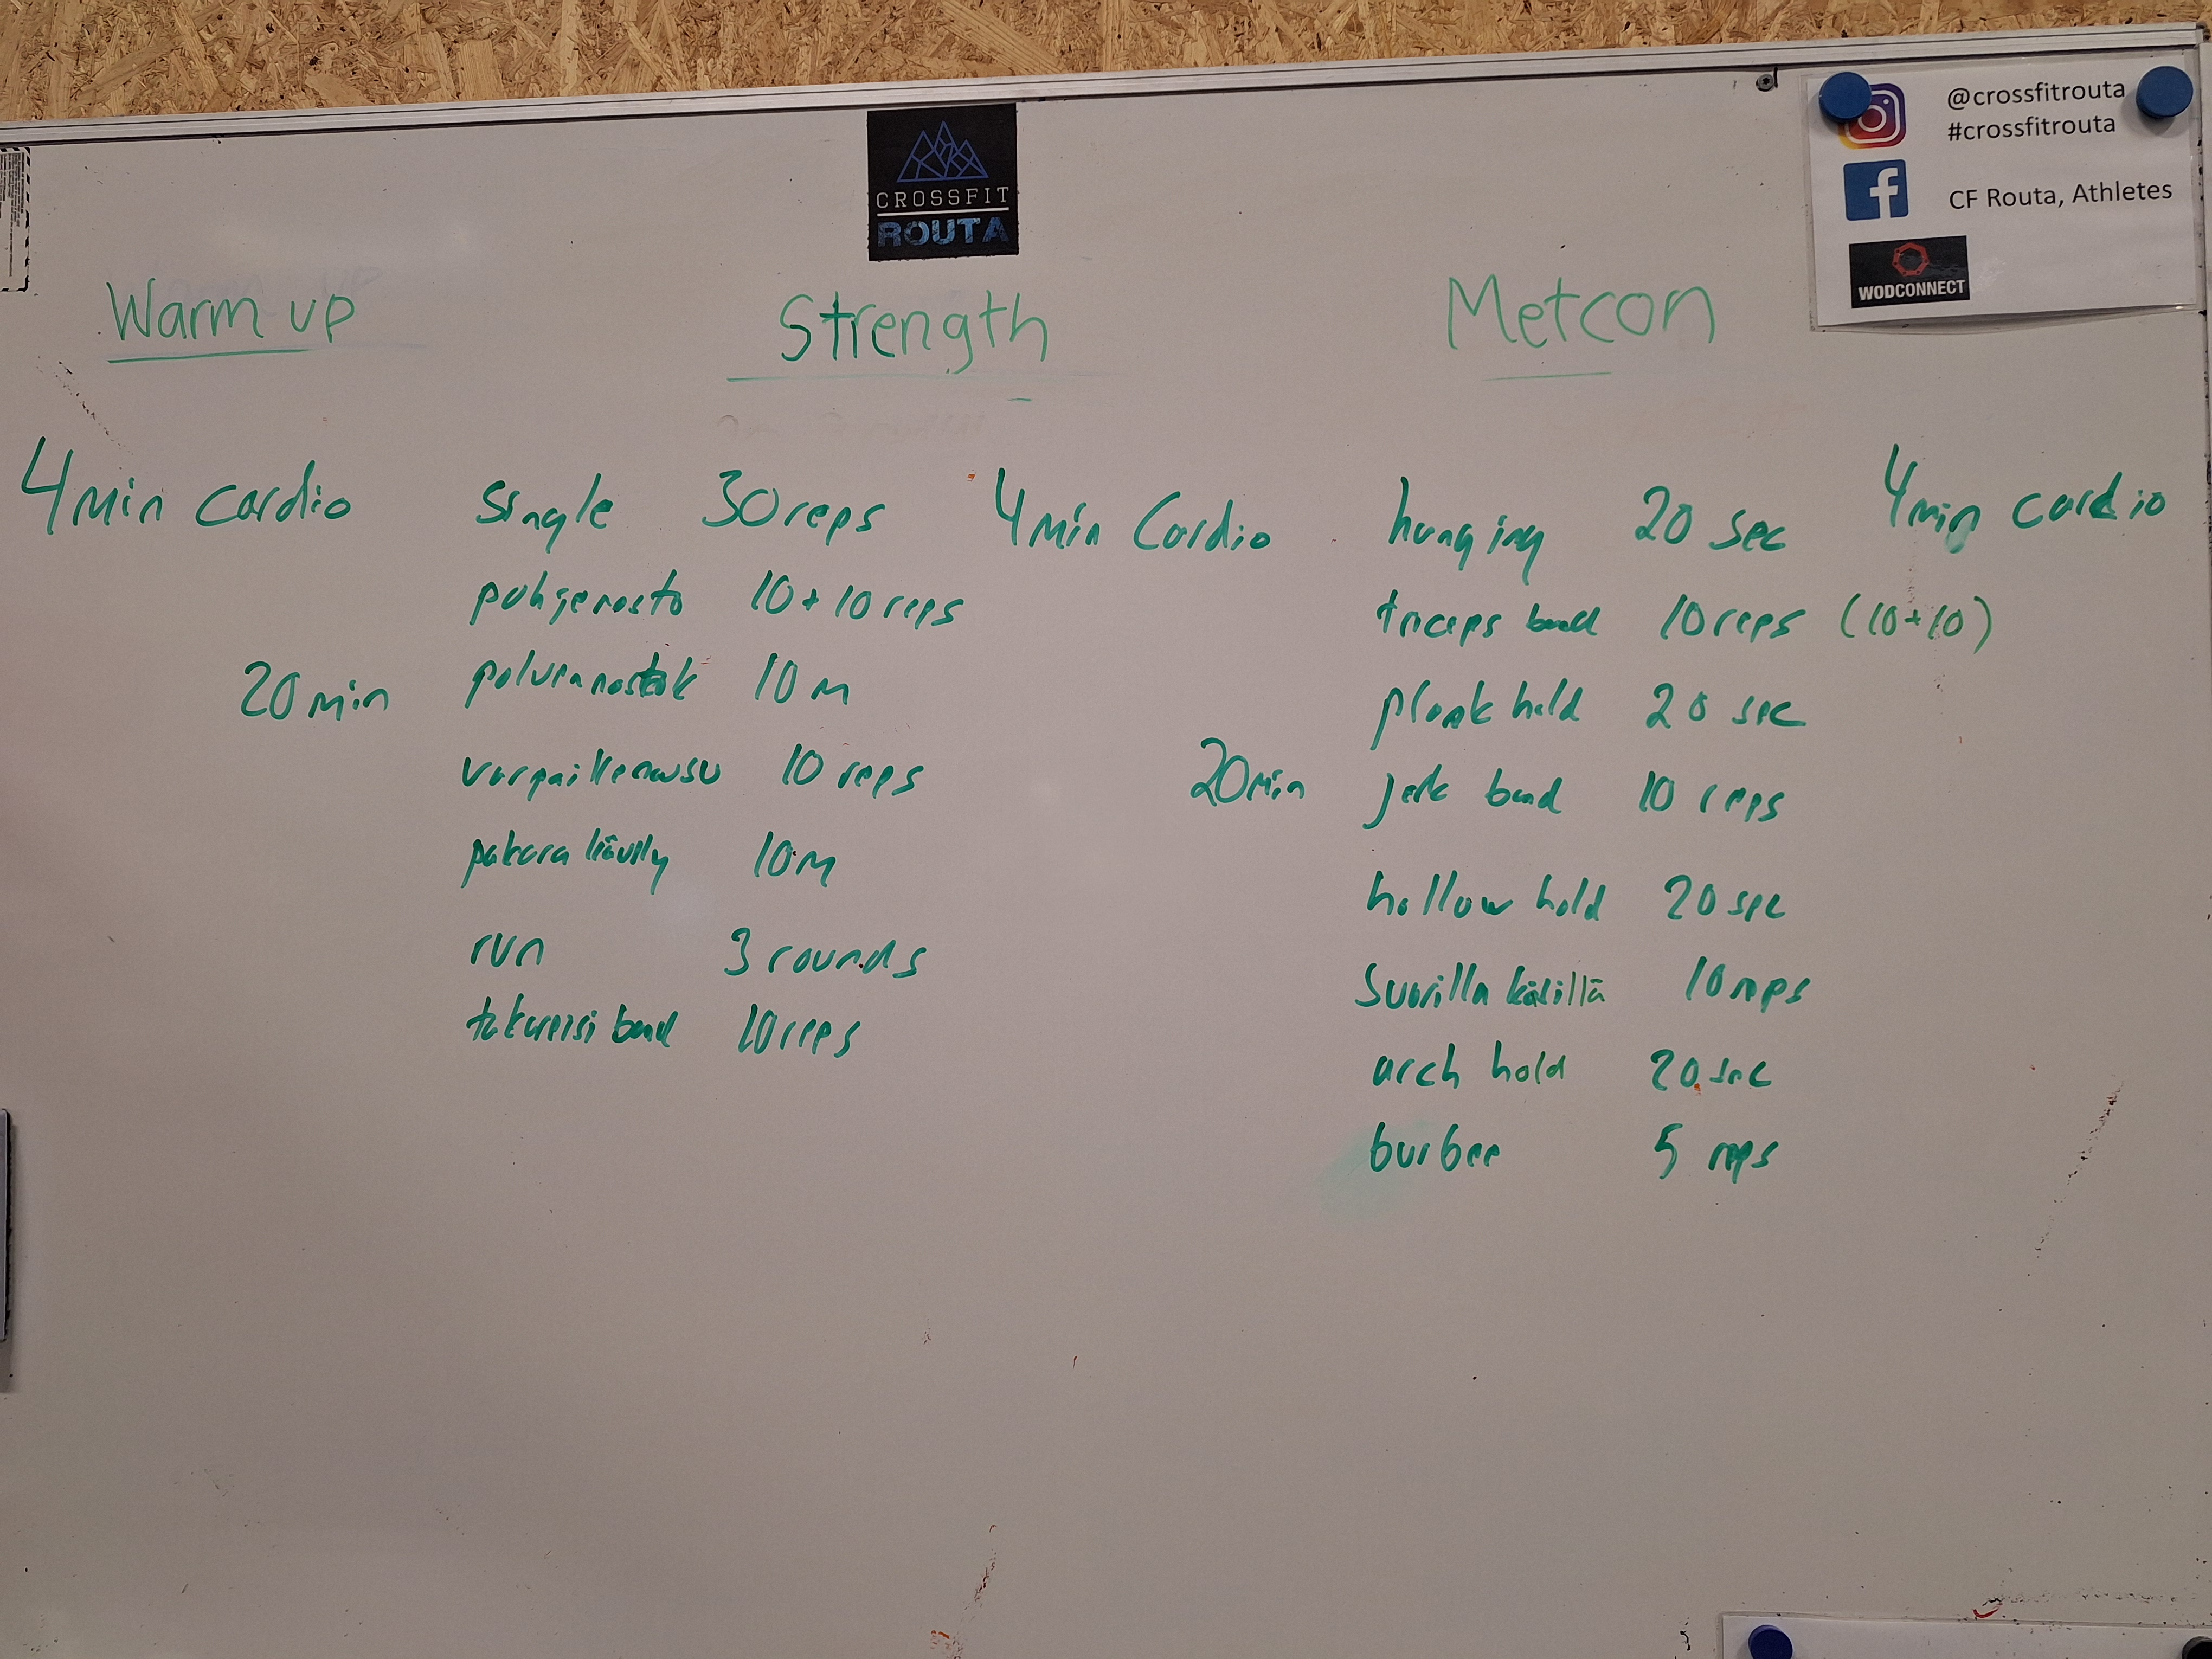 @crossfitrouta
#crossfitrouta
CF Routa, Athletes
WODCONNECT
CROSSFIT
ROUTA
Warm up
Strength
Metcon
4 min cardio
20 min
single 30 reps
pohjenosto 10+10 reps
polvennostok 10 m
varpaillenousu 10 reps
pakara kävely 10 m
run 3 rounds
takareisi band 10 reps
4 min Cardio
20 min
hanging 20 sec
triceps band 10 reps (10+10)
plank hold 20 sec
jerk band 10 reps
hollow hold 20 sec
Suorilla käsillä 10 reps
arch hold 20 sec
burbee 5 reps
4 min cardio